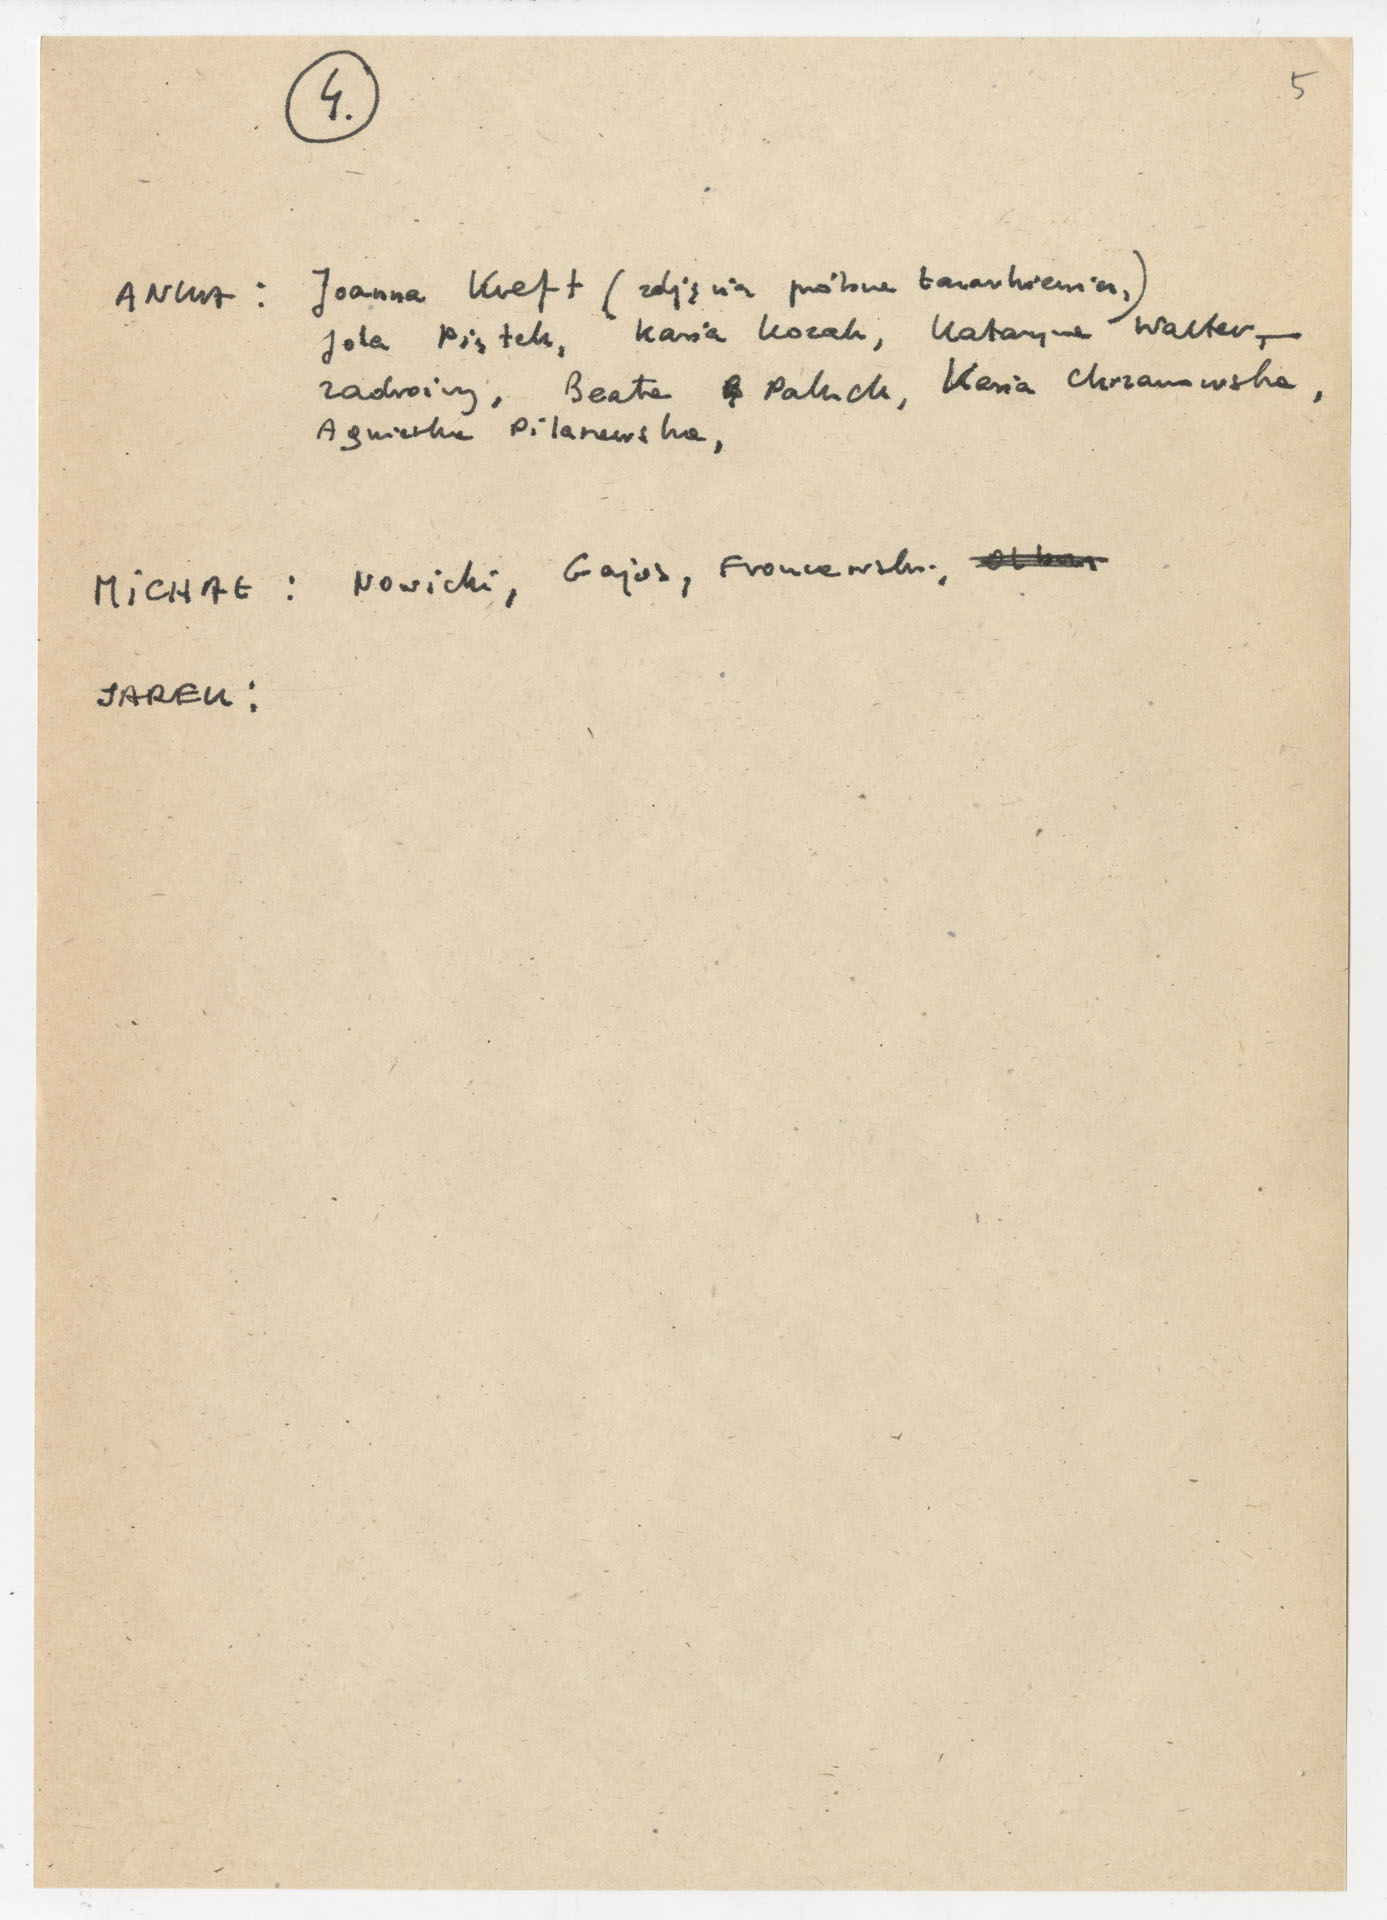 4.
5
ANKA : Joanna Kreft (zdjęcia próbne
Jola Piątek, Kasia Kozak, Katarzyna Walter-
zadroiny, Beata Paluch, Kasia Chrzanowska,
Agnieszka Pilaszewska,
MICHAŁ : Nowicki, Gajos, Fronczewski,
JAREK :